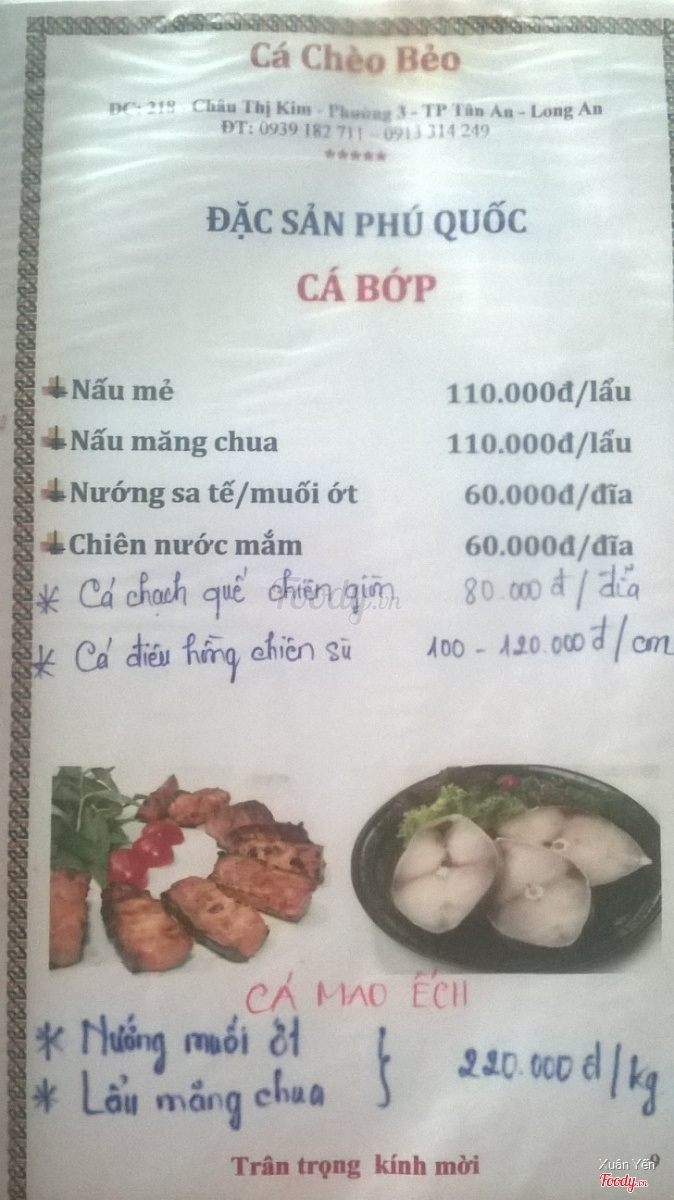 Cá Chèo Bẻo
ĐC: 218 Châu Thị Kim - Phường 3 - TP Tân An - Long An
ĐT: 0939 182 711 - 0913 314 249
*****
ĐẶC SẢN PHÚ QUỐC
CÁ BỚP
Nấu mẻ 110.000đ/lẩu
Nấu măng chua 110.000đ/lẩu
Nướng sa tế/muối ớt 60.000đ/đĩa
Chiên nước mắm 60.000đ/đĩa
* Cá chạch quế chiên giòn 80.000đ/đĩa
* Cá điêu hồng chiên sù 100 - 120.000đ/cm
Foody.vn
CÁ MAO ẾCH
* Nướng muối ớt } 220.000đ/kg
* Lẩu măng chua
Trân trọng kính mời
9
Xuân Yến
Foody.vn